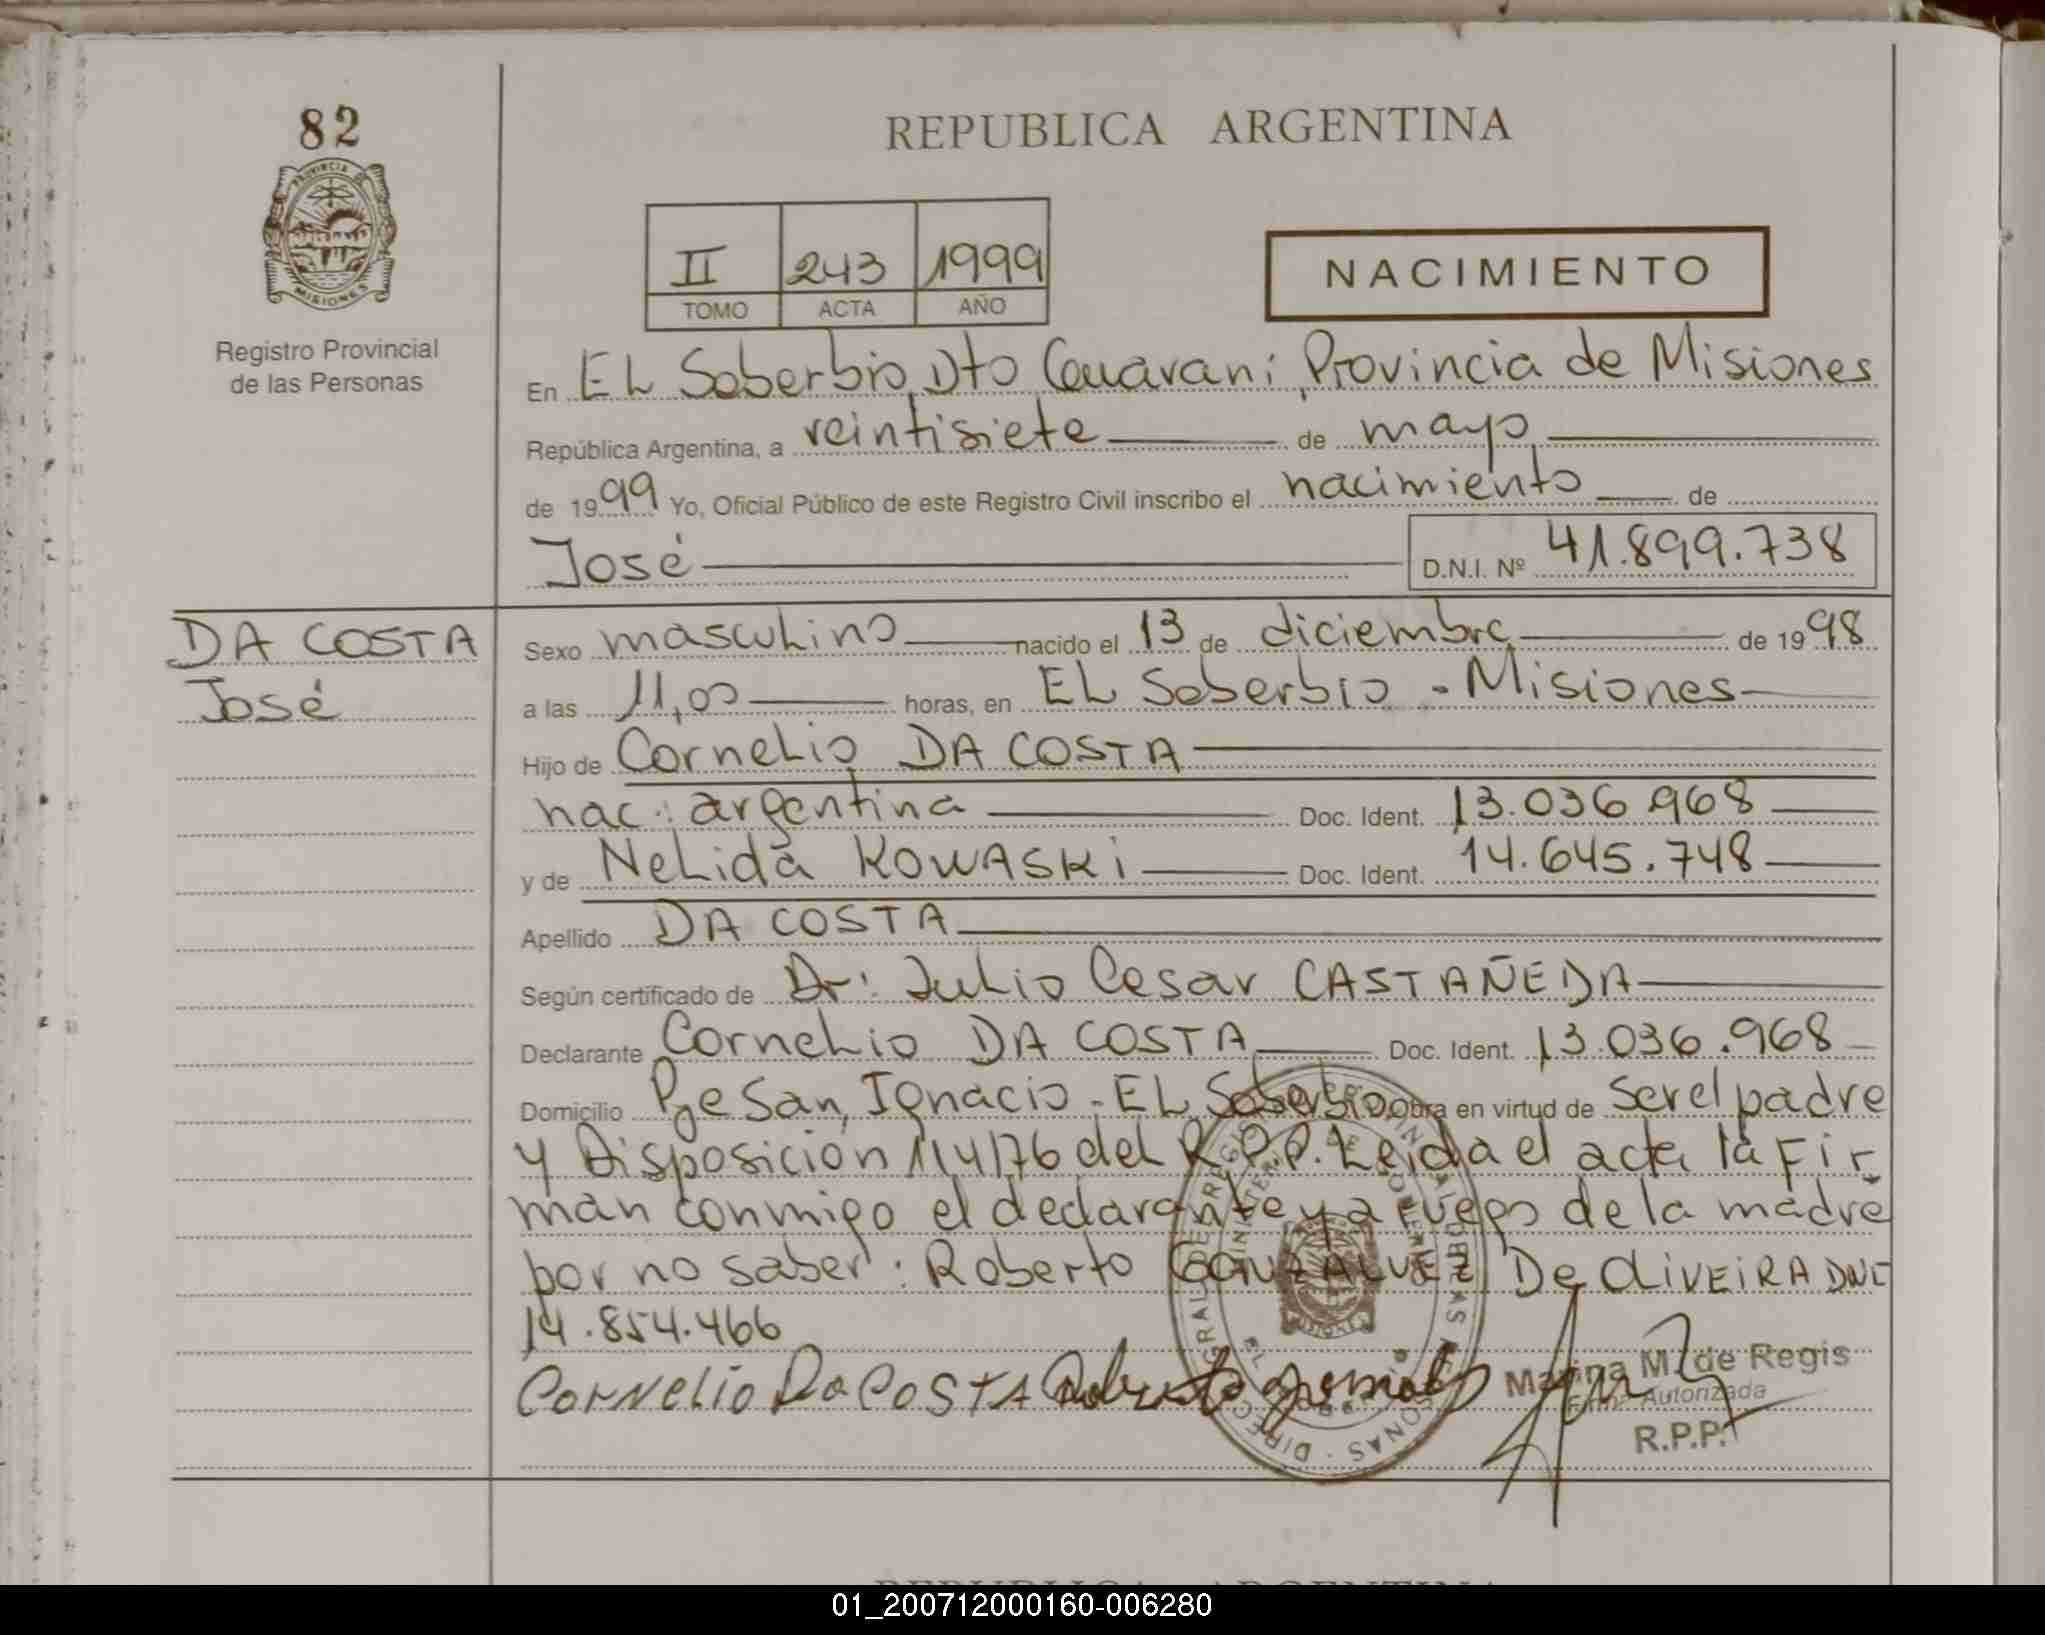 82
PROVINCIA DE
MISIONES
Registro Provincial
de las Personas
REPUBLICA ARGENTINA
II 243 1999
TOMO ACTA AÑO
NACIMIENTO
En EL Soberbio, Dto Guaraní, Provincia de Misiones
República Argentina, a veintisiete de mayo
de 1999 Yo, Oficial Público de este Registro Civil inscribo el nacimiento de
José D.N.I. Nº 41.899.738
DA COSTA
José
Sexo masculino nacido el 13 de diciembre de 1998
a las 11,00 horas, en EL Soberbio - Misiones
Hijo de Cornelio DA COSTA
nac: argentina Doc. Ident. 13.036.968
y de Nelida KOWASKi Doc. Ident. 14.645.748
Apellido DA COSTA
Según certificado de Dr: Julio Cesar CASTAÑEDA
Declarante Cornelio DA COSTA Doc. Ident. 13.036.968
Domicilio Pje San Ignacio - EL Soberbio Obra en virtud de ser el padre
y Disposición 114/76 del R.P.P. Leida el acta la Fir
man conmigo el declarante y a ruego de la madre
por no saber: Roberto GONZALVEZ De OLiVEiRA DNI
14.854.466
CORNELIO Da COSTA
Marina M. de Regis
Firma Autorizada
R.P.P.
REPUBLICA ARGENTINA
01_200712000160-006280